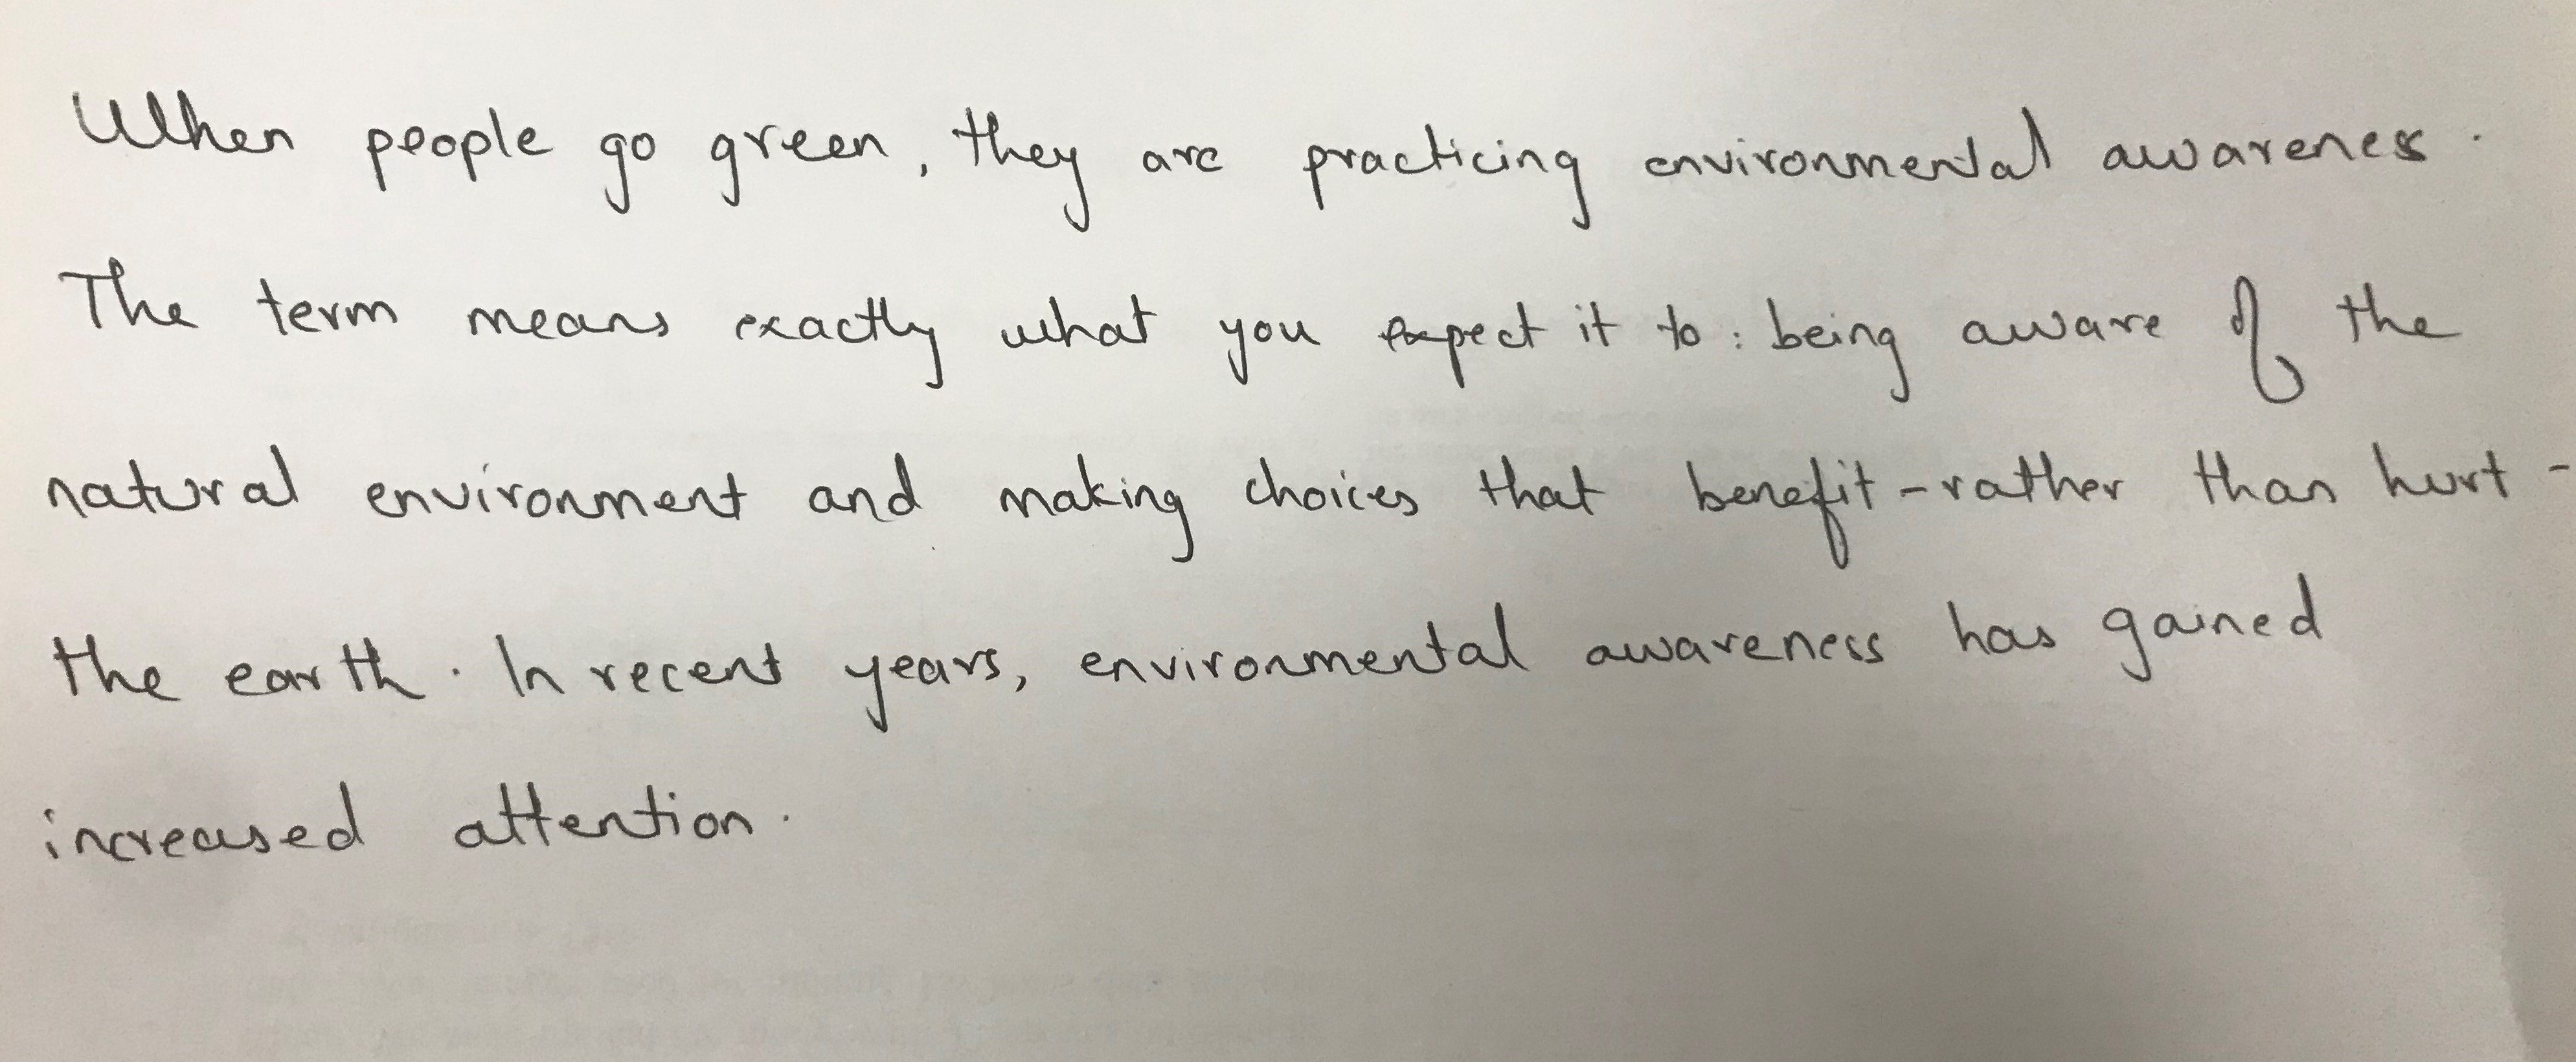 When people go green, they are practicing environmental awareness.
The term means exactly what you expect it to: being aware of the
natural environment and making choices that benefit - rather than hurt -
the earth. In recent years, environmental awareness has gained
increased attention.